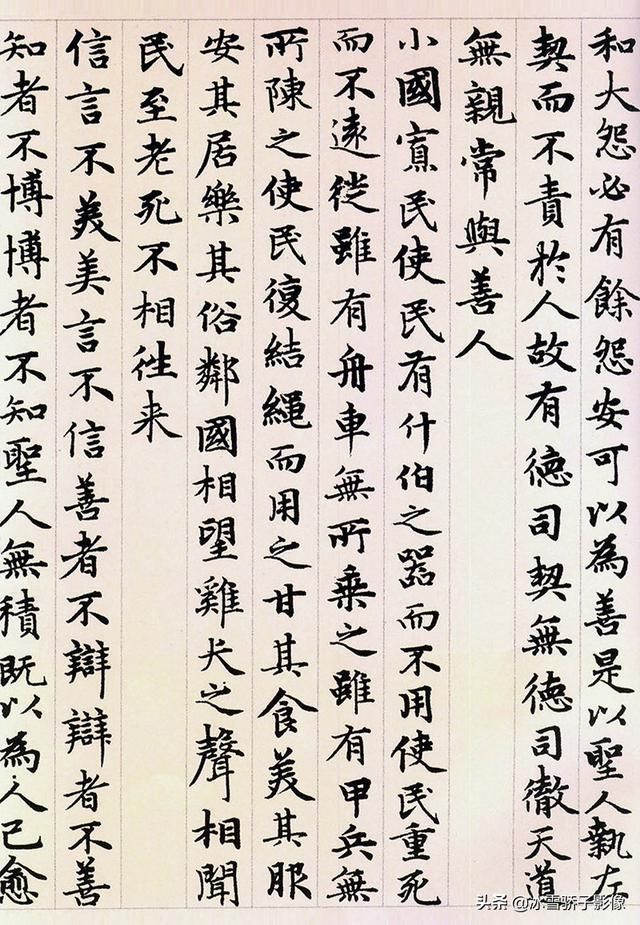 和大怨必有餘怨安可以為善是以聖人執左
契而不責於人故有德司契無德司徹天道
無親常與善人
小國寡民使民有什伯之器而不用使民重死
而不遠徙雖有舟車無所乘之雖有甲兵無
所陳之使民復結繩而用之甘其食美其服
安其居樂其俗鄰國相望雞犬之聲相聞
民至老死不相往来
信言不美美言不信善者不辯辯者不善
知者不博博者不知聖人無積既以為人己愈
头条 @冰雪骄子影像